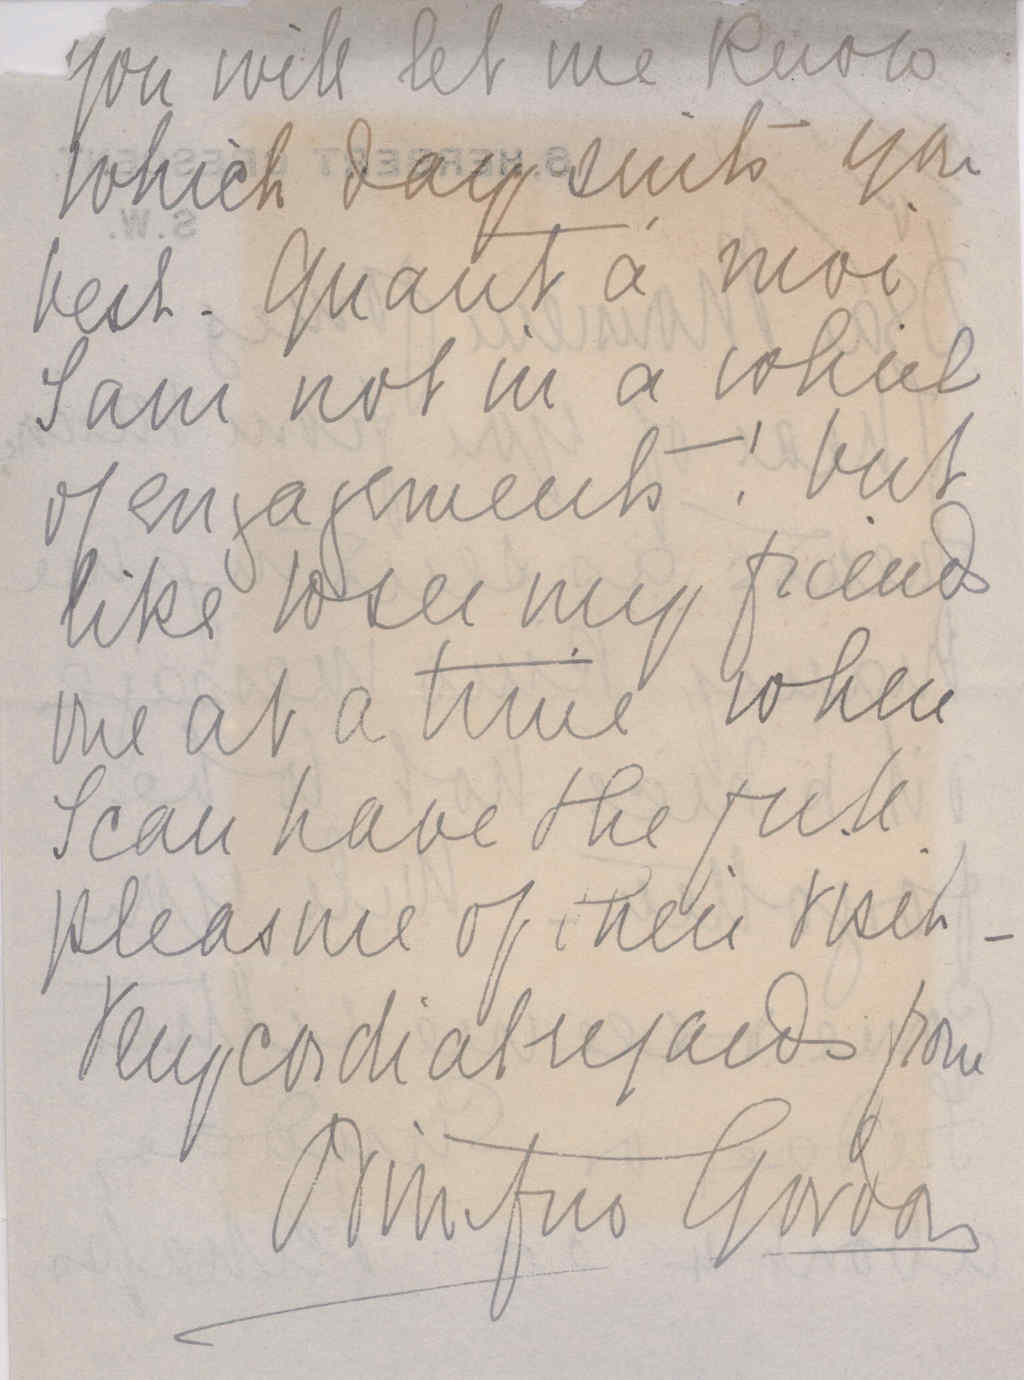 you will let me know
which day suits you
best. Quant à moi
I am not in a whirl
of engagements! but
like to see my friends
one at a time when
I can have the full
pleasure of their visit -
Very cordial regards from
Winifred Gordon